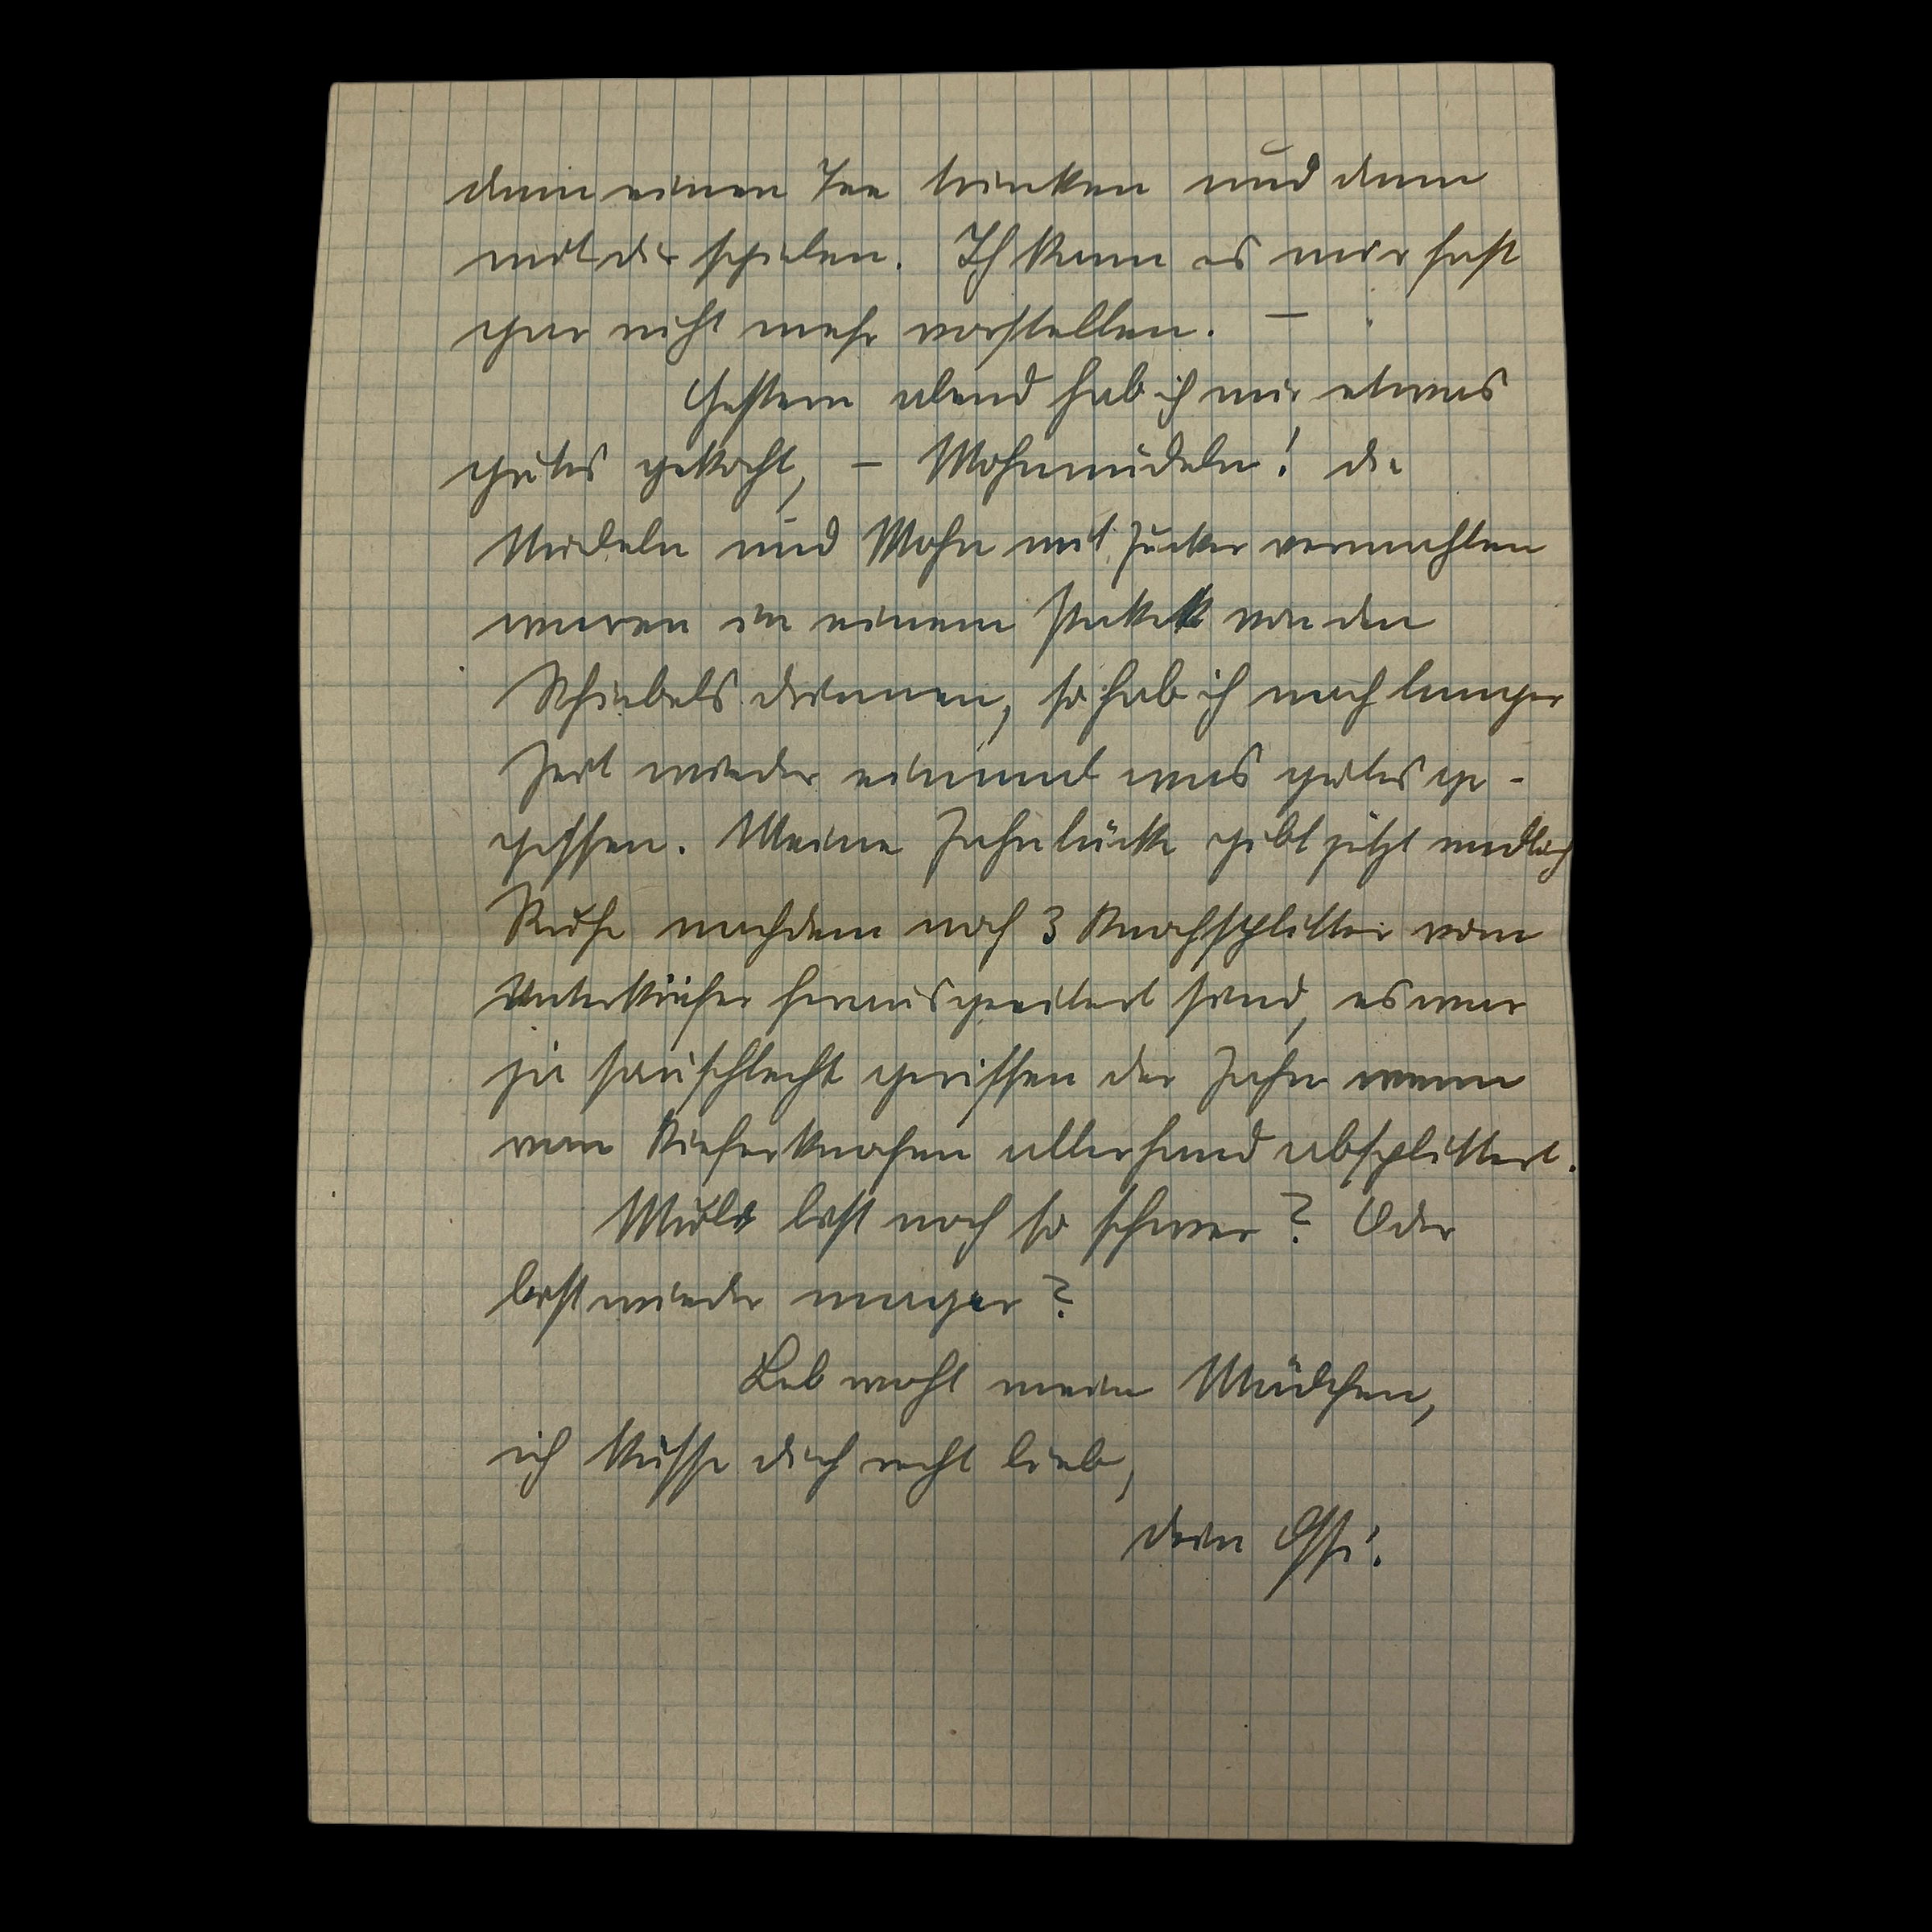 dann einen Tee trinken und dann
mit dir spielen. Ich kann es mir fast
gar nicht mehr vorstellen. –
Gestern abend hab ich mir etwas
gutes gekocht, – Mohnnudeln! die
Nudeln und Mohn mit Zucker vermahlen
waren in einem Paket von den
Schiebels drinnen, so hab ich nach langer
Zeit wieder einmal was gutes ge-
gessen. Meine Zahnlücke gibt jetzt endlich
Ruhe nachdem noch 3 Knochsplitter vom
Unterkiefer herausgeeitert sind, es war
ja sauschlecht gerissen der Zahn wenn
vom Kieferknochen allerhand absplittert.
bist noch so schwer? Oder
bist wieder mager?
Leb wohl mein Mädchen,
ich küsse dich recht lieb,
dein Ossi.